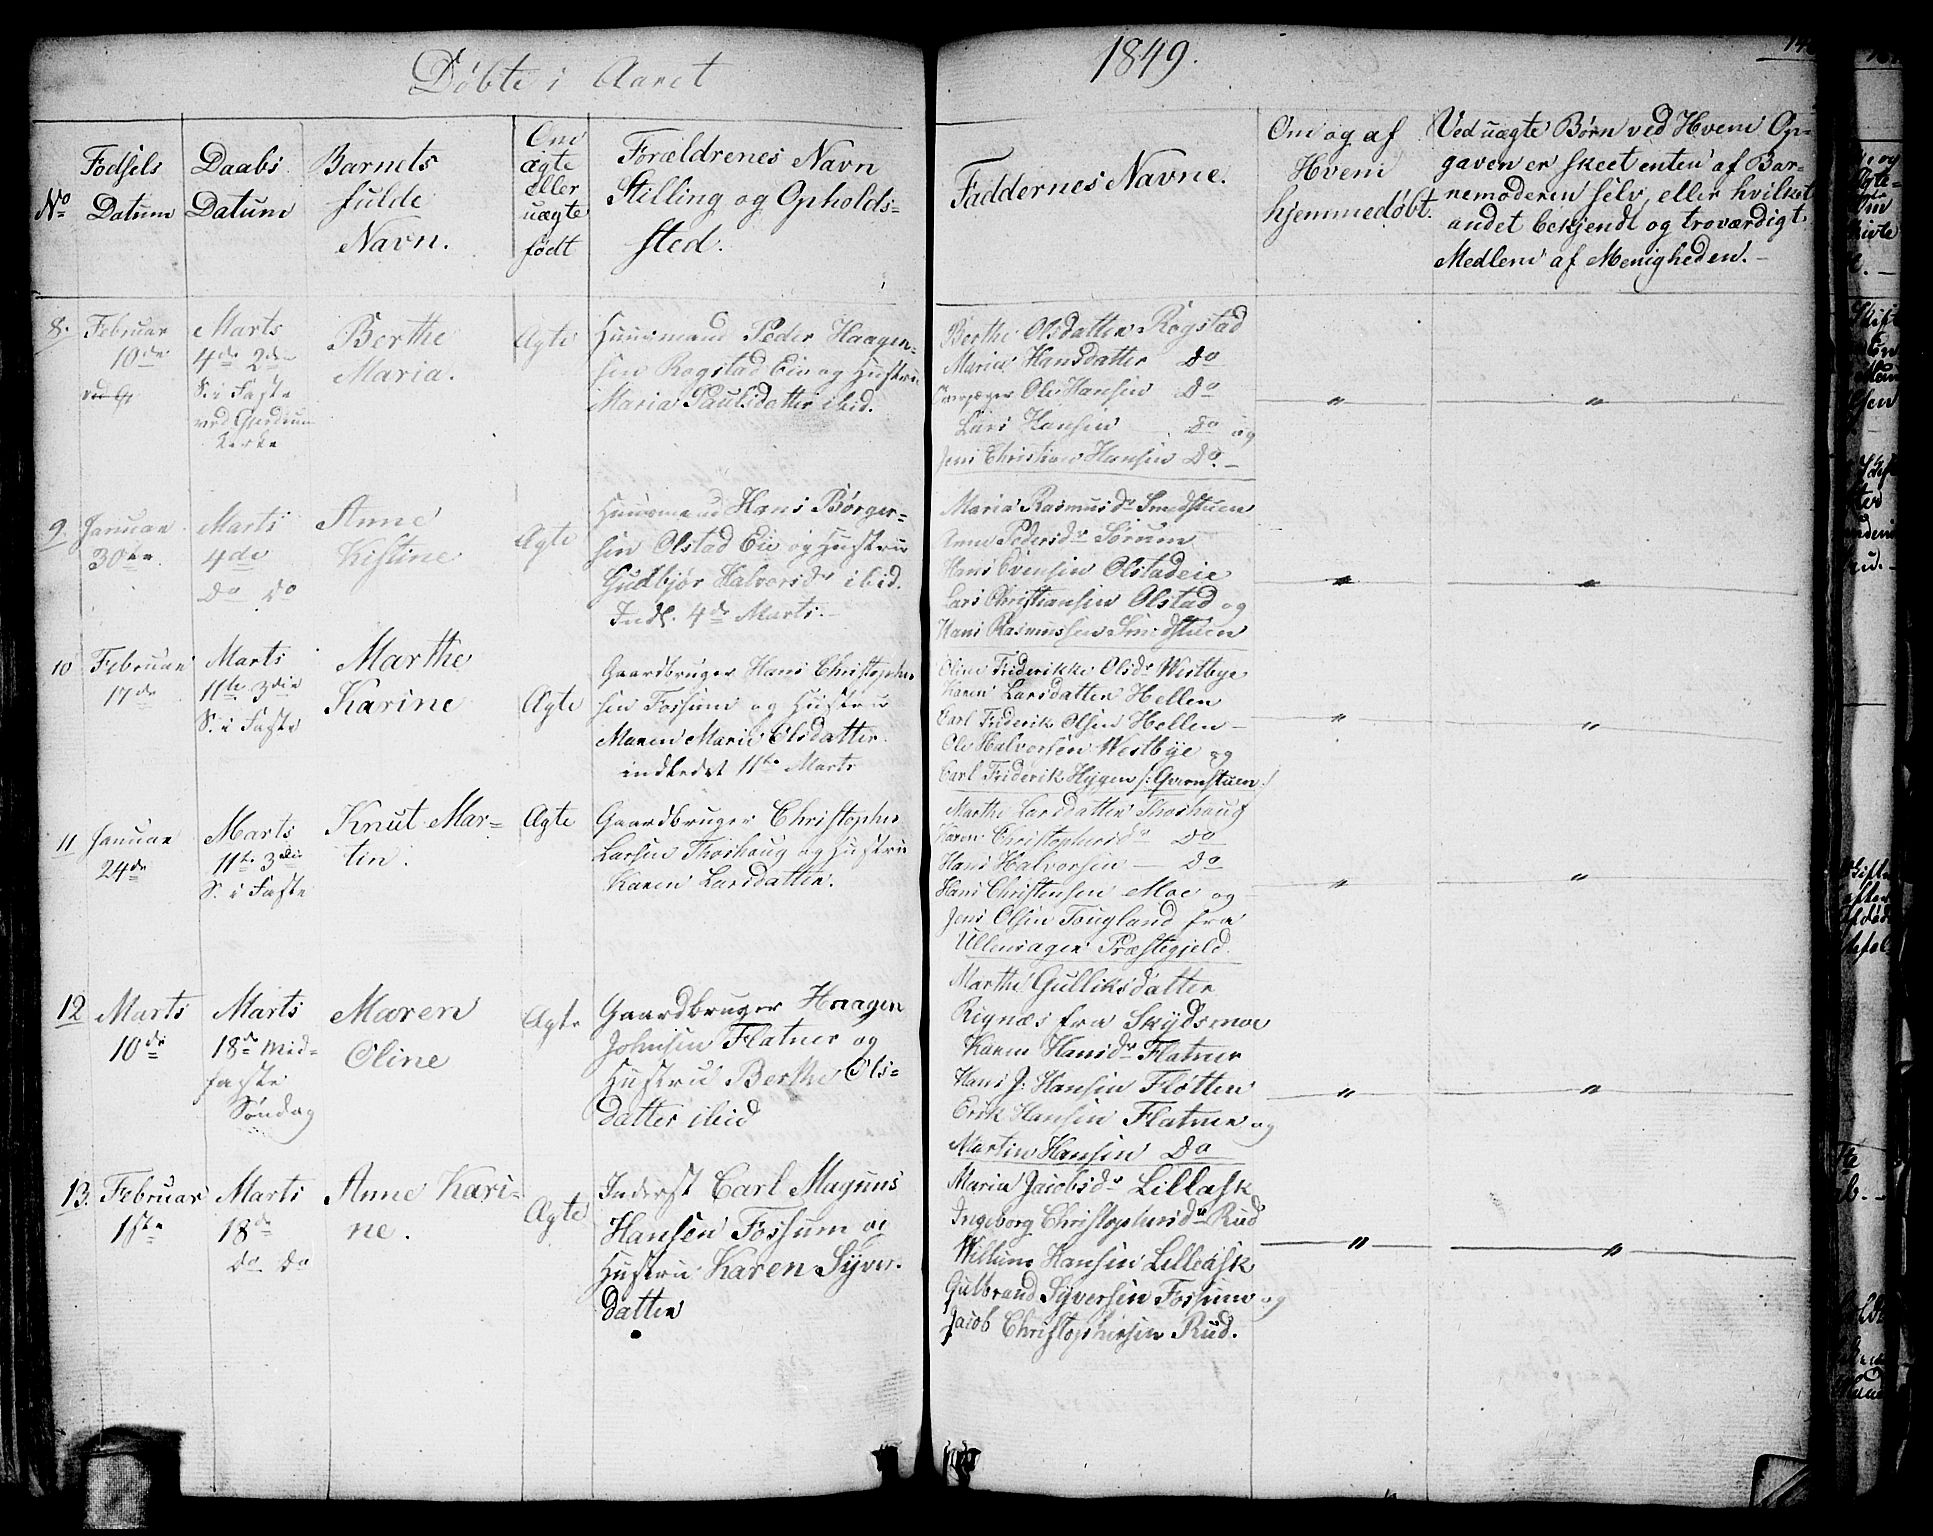 Døbte i Aaret
1849.
No
Fødsels
Datum
Daabs
Datum
Barnets
fulde
Navn.
Om
ægte
eller
uægte
født
Forældrenes Navn
Stilling og Opholds-
sted.
Faddernes Navne.
Om og af
Hvem
hjemmedøbt.
Ved uægte Børn ved Hvem Op-
gaven er skeet enten af Bar-
nemoderen selv, eller hvilket
andet bekjendt og troværdigt
Medlem af Menigheden.
8. Februar
10de
Marts
4de 2den
S. i Faste
ved
Kirke
Berthe
Maria.
Ægte
Huusmand Peder Haagen-
sen Rogstad Eie og Hustru
Maria Paulsdatter ibid.
Berthe Olsdatter Rogstad
Maria Hansdatter Do
Ole Hansen Do
Lars Hansen Do og
Jens Christian Hansen Do. -
" "
9. Januar
30te
Marts
4de
Do Do
Anne
Kistine
Ægte
Huusmand Hans Børger-
sen Olstad Eie og Hustru
Gudbjør Halvorsdr ibid.
Indl. 4de Marts.
Maria Rasmusdr Smedstuen
Anne Pedersdr Sørum
Hans Evensen Olstadeie
Lars Christiansen Olstad og
Hans Rasmussen Smedstuen
" "
10 Februar
17de
Marts
11te 3die
S. i Faste
Marthe
Karine
Ægte
Gaardbruger Hans Christopher-
sen Fossum og Hustru
Maren Marie Olsdatter.
indledet 11te Marts
Oline Friderikke Olsdr Westbye
Karen Larsdatter Hellen
Carl Friderik Olsen Hellen -
Ole Halvorsen Westbye og
Carl Friderik Hygen /: Qvernstuen :/
" "
11 Januar
24de
Marts
11te 3die
S. i Faste
Knut Mar-
tin.
Ægte
Gaardbruger Christopher
Larsen Thoshaug og Hustru
Karen Larsdatter.
Marthe Larsdatter Thoshaug
Karen Christophersdr Do
Hans Halvorsen - Do
Hans Christensen Moe og
Jens Olsen Fougland fra
Ullensager Præstegjeld.
" "
12 Marts
10de
Marts
18de Mid-
faste
Søndag
Maren
Oline
Ægte
Gaardbruger Haagen
Johnsen Flatner og
Hustru Berthe Ols-
datter ibid
Marthe Gulliksdatter
Rignæs fra Skydsmoe
Karen Hansdr Flatner
Hans J: Hansen Fløtten
Erik Hansen Flatner og
Martin Hansen Do
" "
13. Februar
1ste
Marts
18de
Do Do
Anne Kari-
ne.
Ægte
Inderst Carl Magnus
Hansen Fossum og
Hustru Karen Syver-
datter
Maria Jacobsdr Lilleask
Ingeborg Christophersdr Rud
Willum Hansen Lilleask
Gulbrand Syversen Fossum og
Jacob Christophersen Rud.
" "